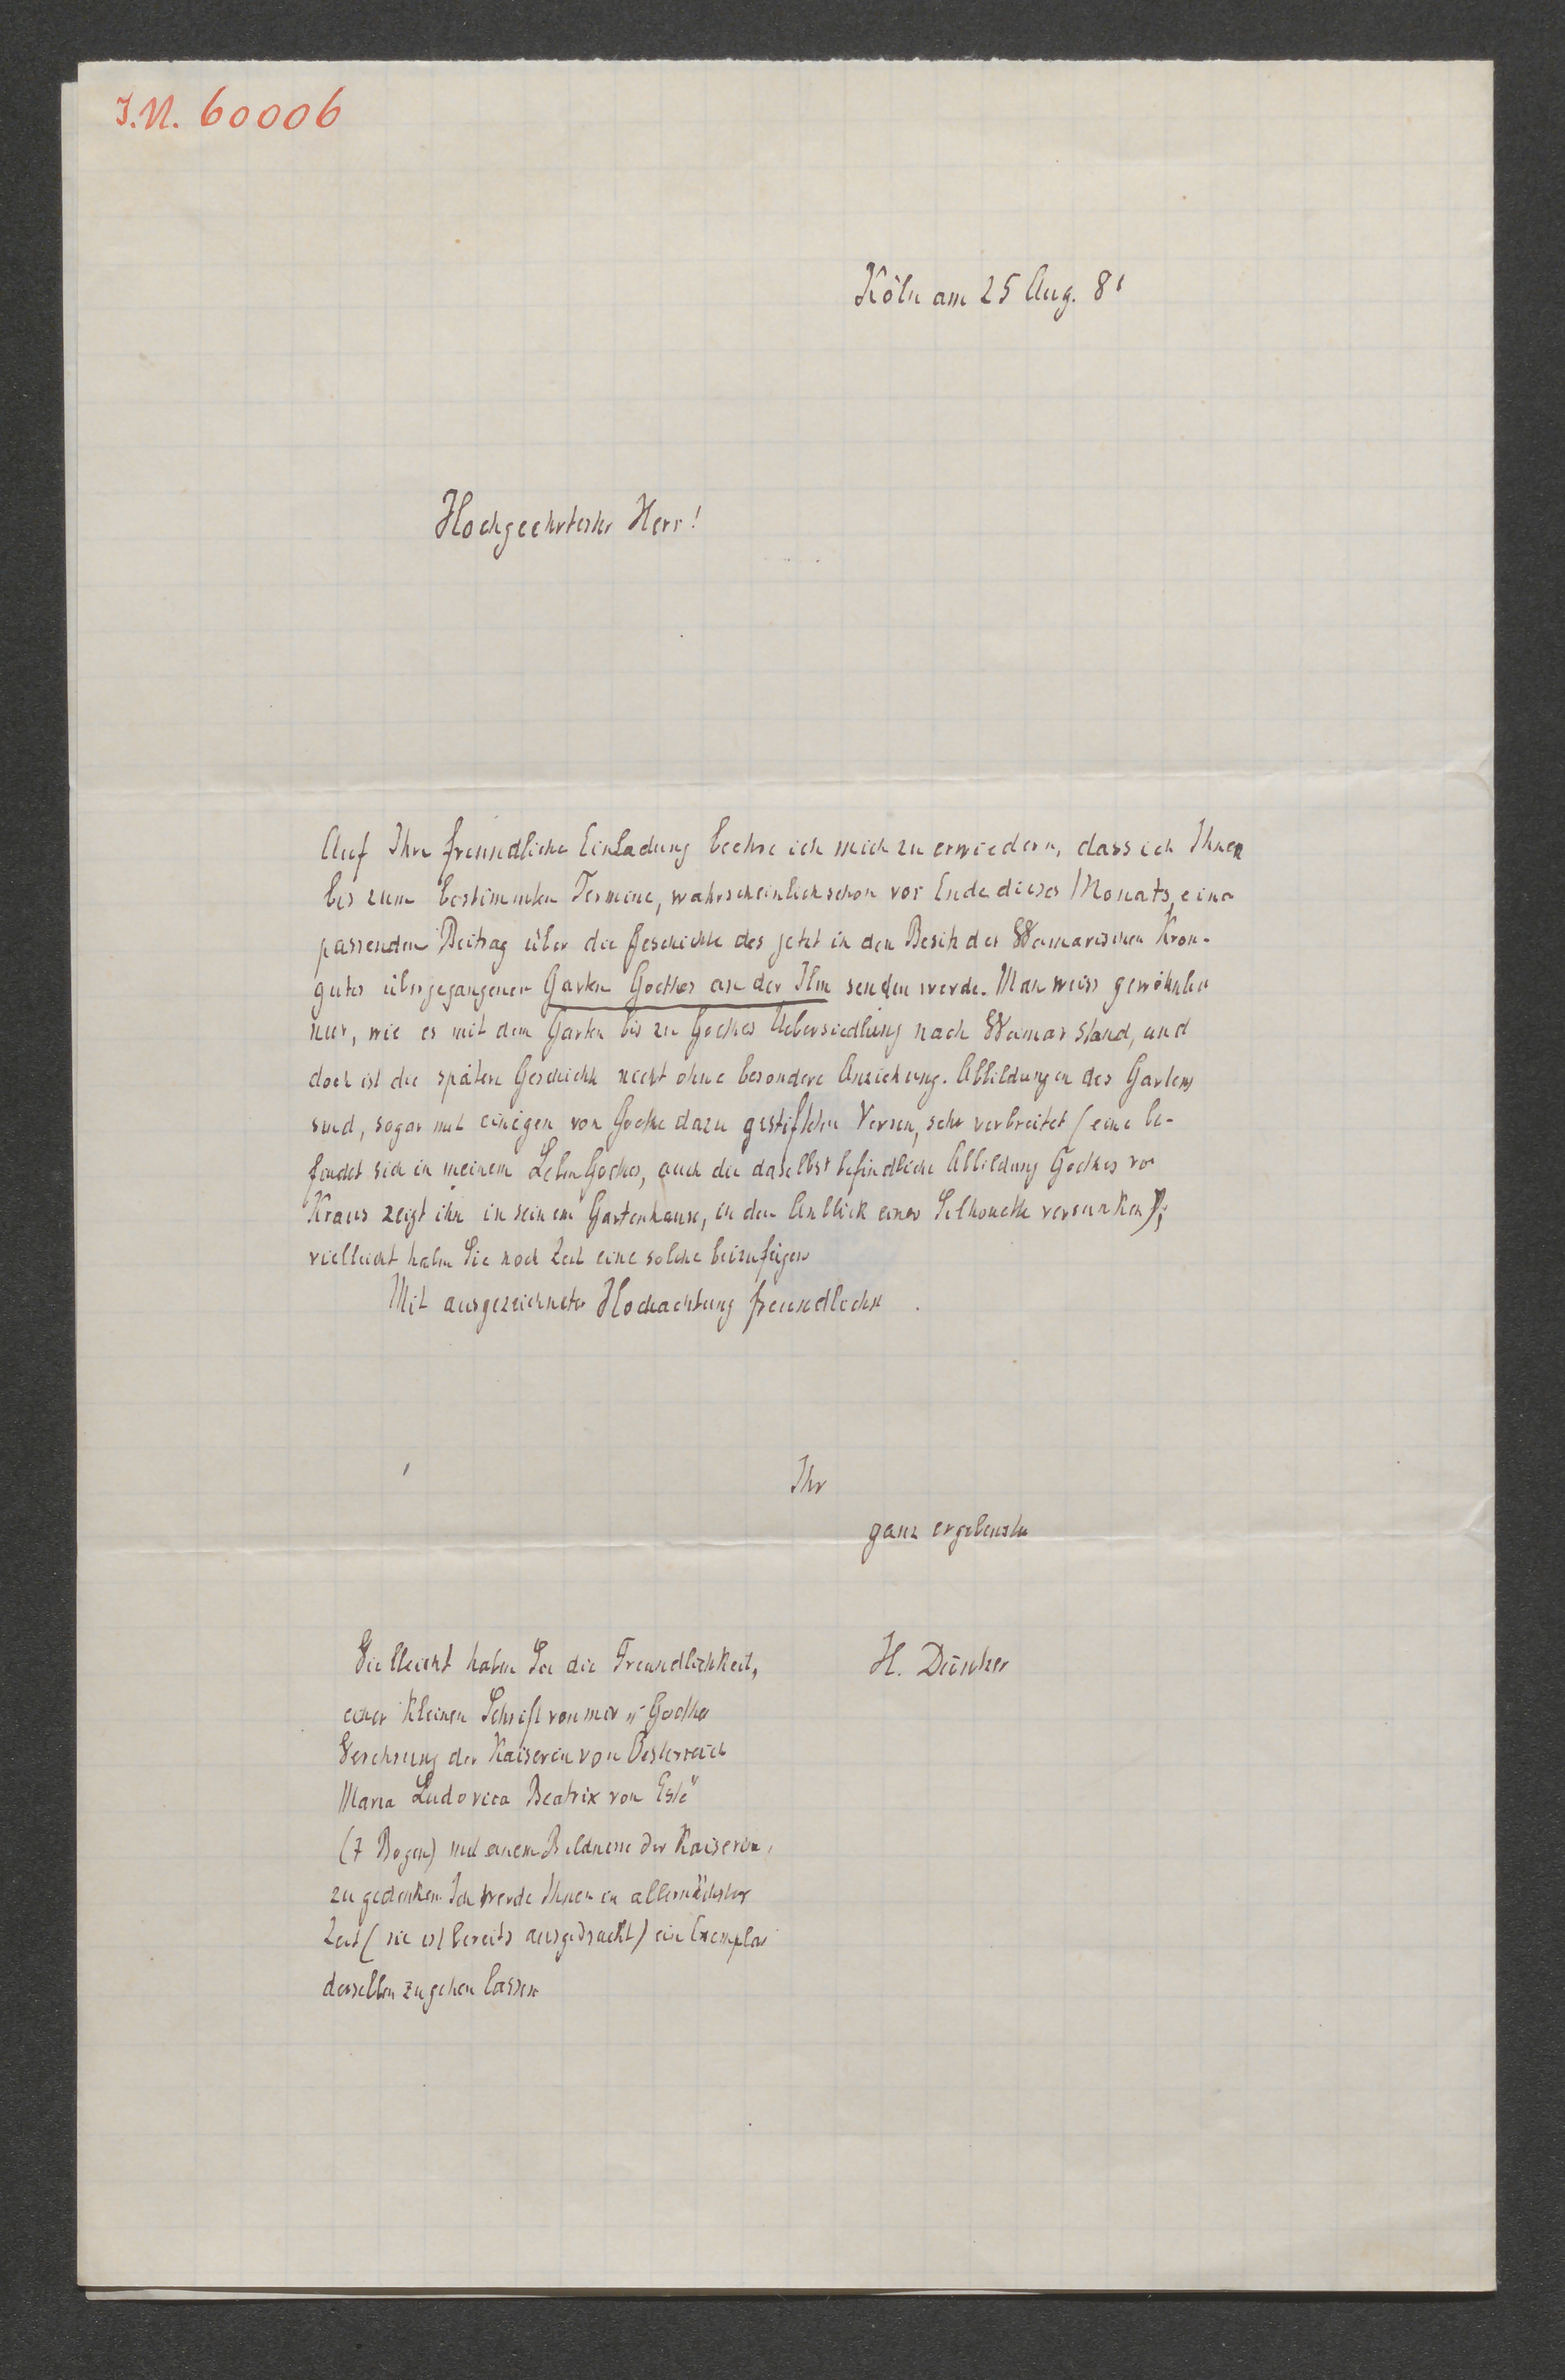 I.N. 60006
Köln am 25 Aug. 81
Hochgeehrtester Herr!
Auf Ihre freundliche Einladung beehre ich mich zu erwiedern, dass ich Ihnen
bis zum bestimmten Termine, wahrscheinlich schon vor Ende dieses Monats, einen
passenden Beitrag über die Geschichte des jetzt in den Besitz des Weimarischen Kron-
gutes übergegangenen Garten Goethes an der Ilm senden werde. Man weiss gewöhnlich
nur, wie es mit dem Garten bis zu Goethes Uebersiedlung nach Weimar stand, und
doch ist die spätere Geschichte nicht ohne besondere Anziehung. Abbildungen des Gartens
sind, sogar mit einigen von Goethe dazu gestifteten Versen, sehr verbreitet (eine be-
findet sich in meinem Leben Goethes, auch die daselbst befindliche Abbildung Goethes von
Kraus zeigt ihn in seinem Gartenhause, in den Anblick einer Silhouette versunken);
vielleicht haben Sie noch Zeit eine solche beizufügen
Mit ausgezeichneter Hochachtung freundlichst
Ihr
ganz ergebenster
H. Düntzer
Vielleicht haben Sie die Freundlichkeit,
einer kleinen Schrift von mir „Goethes
Verehrung der Kaiserin von Oesterreich
Maria Ludovica Beatrix von Este"
(7 Bogen) mit einem Bildnisse der Kaiserin,
zu gedenken. Ich werde Ihnen in allernächster
Zeit (sie ist bereits ausgedruckt) ein Exemplar
derselben zugehen lassen